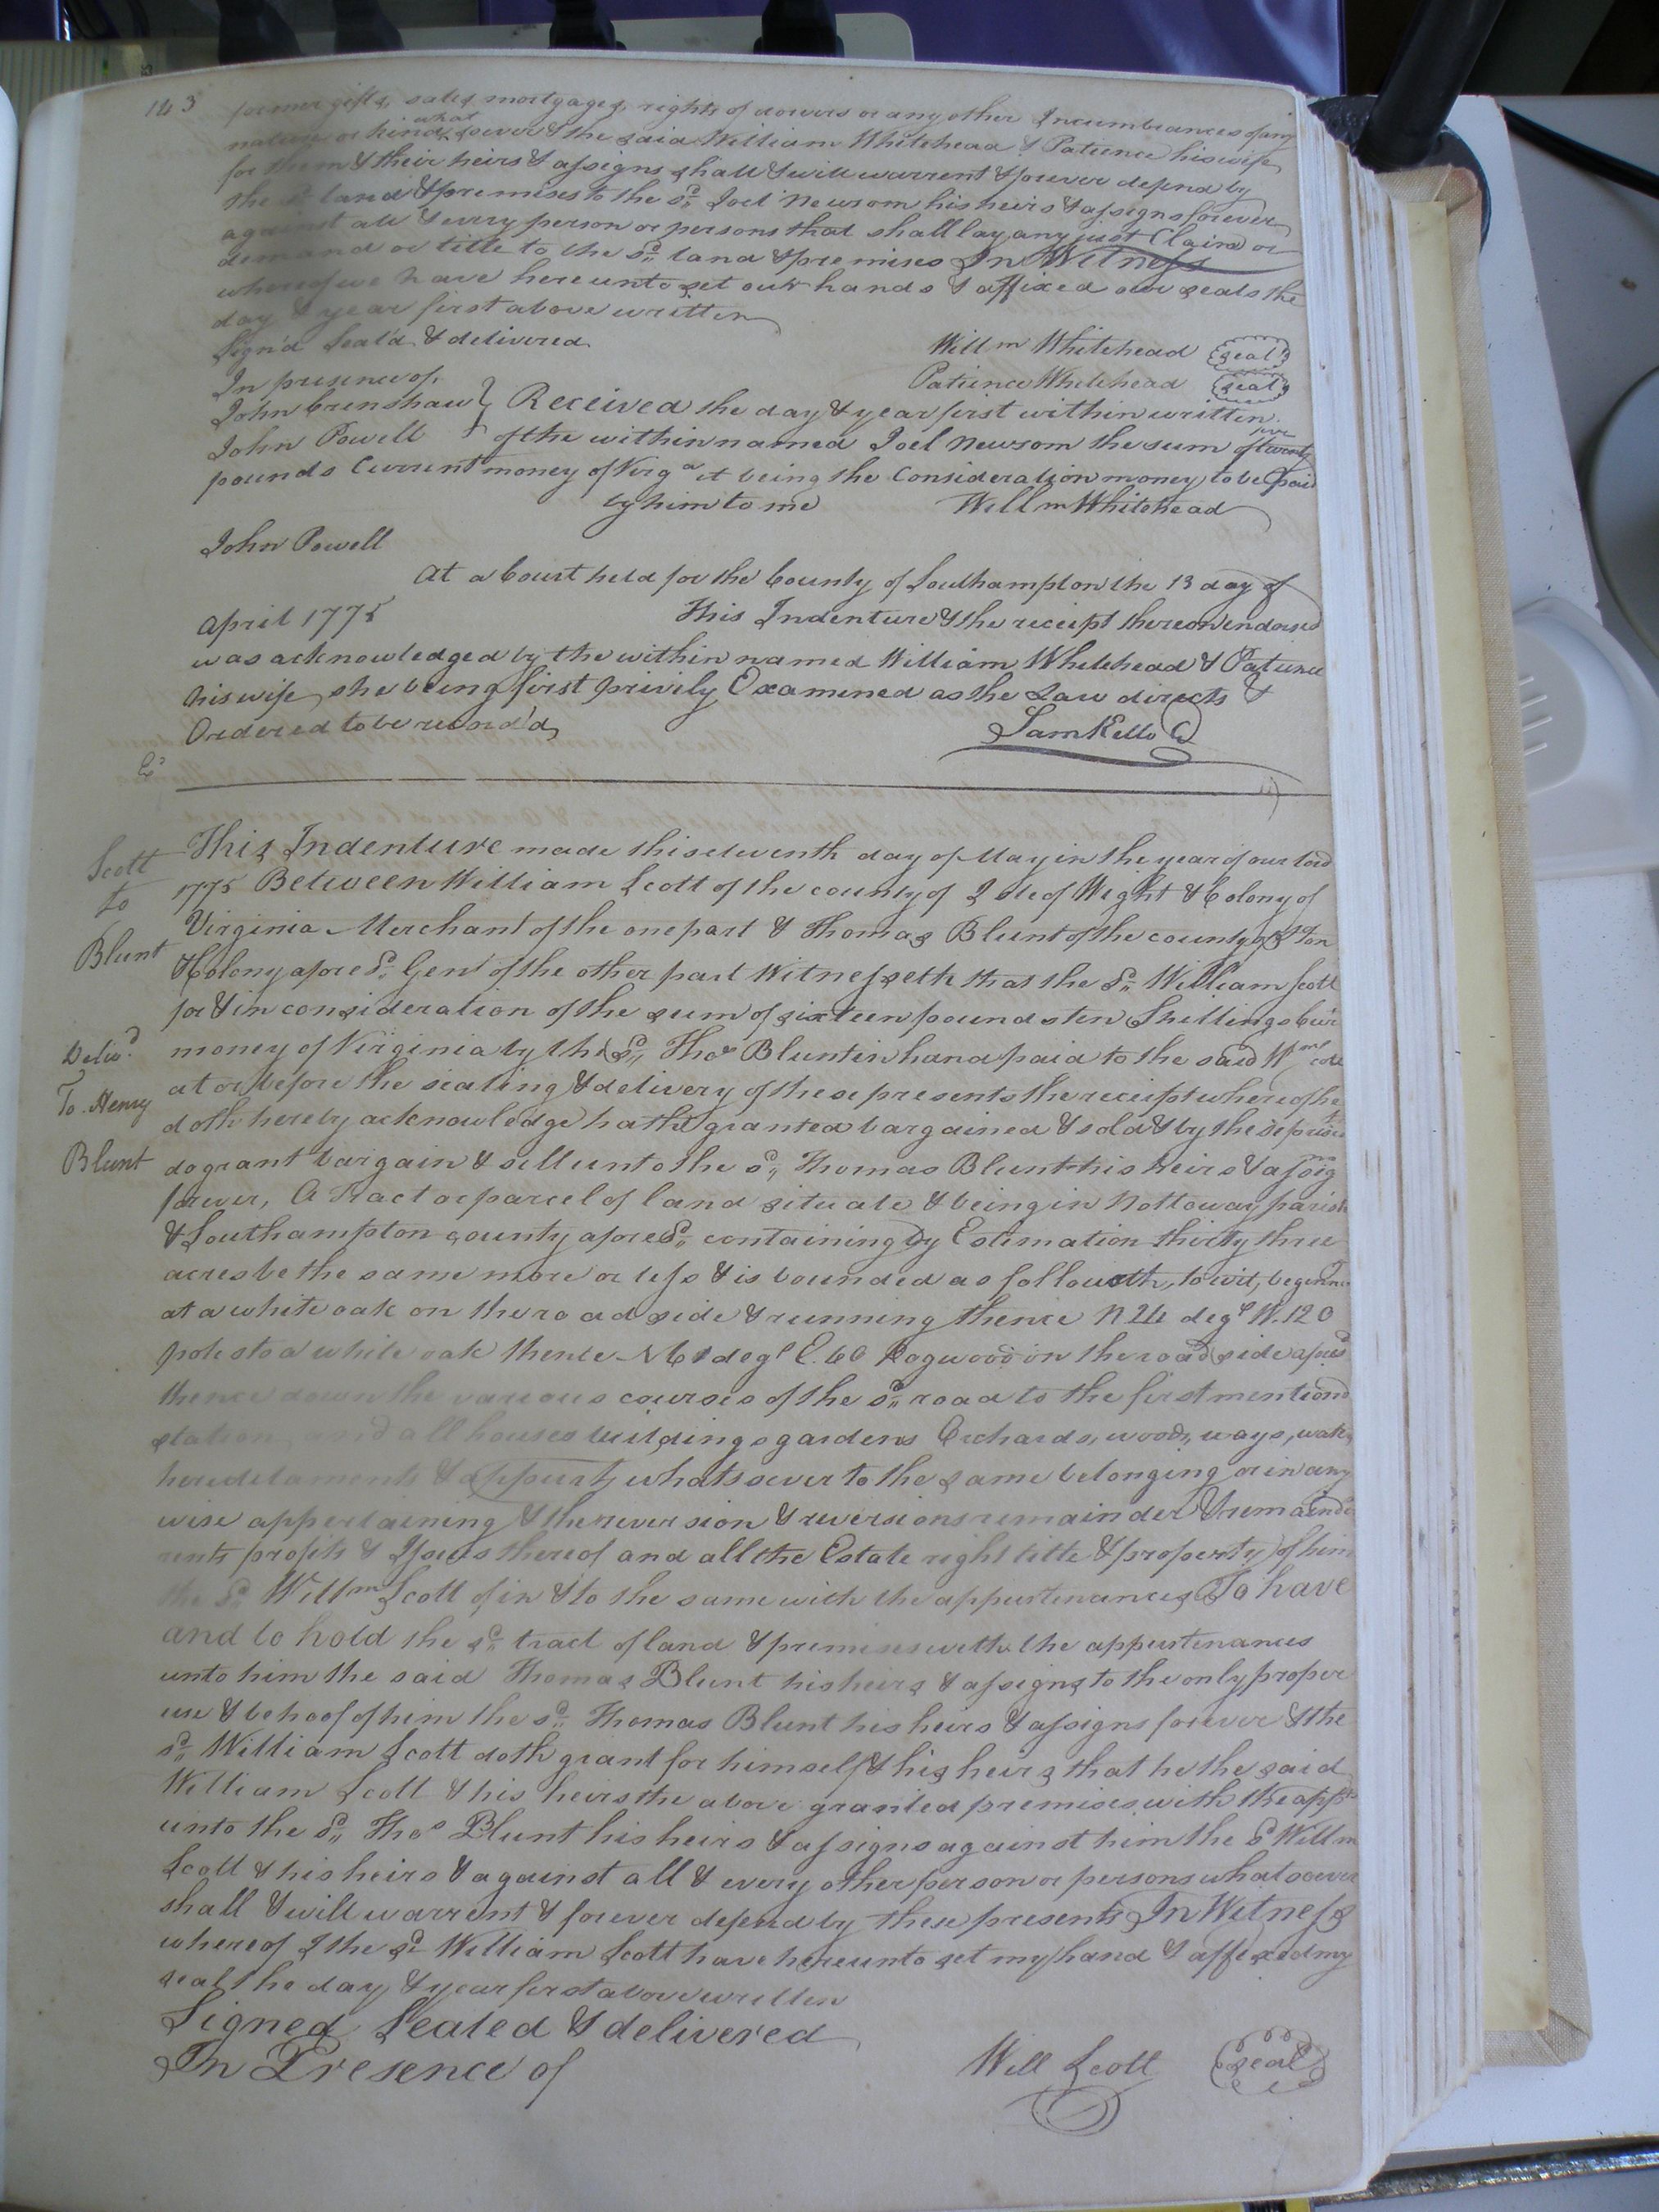 143
former gifts, sales, mortgages, rights of dowers or any other Incumbrances of any
nature or kind what soever & the said William Whitehead & Patience his wife
for them & their heirs & assigns shall & will warrent & forever defend by
the sd. land & premises to the sd. Joel Newsom his heirs & assigns forever
against all & every person or persons that shall lay any just Claim or
demand or title to the sd. land & premises In Witness
whereof we have hereunto set our hands & affixed our seals the
day & year first above written
Sign'd Seal'd & delivered
In presence of
Willm Whitehead seal
Patience Whitehead seal
John Crenshaw } Received the day & year first within written
John Powell } of the within named Joel Newsom the sum of twenty five
pounds Current money of Virga it being the Consideration money to be paid
by him to me Willm Whitehead
John Powell
At a Court held for the County of Southampton the 13 day of
April 1775 This Indenture & the receipt thereon endorsed
was acknowledged by the within named William Whitehead & Patience
his wife she being first privily Examined as the Law directs &
Ordered to be record'd
Sam Kello C
Ed
Scott
to
Blunt
Delivd.
To Henry
Blunt
This Indenture made this eleventh day of May in the year of our lord
1775 Between William Scott of the county of Isle of Wight & Colony of
Virginia Merchant of the one part & Thomas Blunt of the county of S'Ton
& Colony aforesd. Gent of the other part Witnesseth that the sd. William Scott
for & in consideration of the sum of sixteen pounds ten Shillings Curr
money of Virginia by the sd. Thos Blunt in hand paid to the said Wm Scott
at or before the sealing & delivery of these presents the receipt whereof he
doth hereby acknowledge hath granted bargained & sold & by these presents
do grant bargain & sell unto the sd. Thomas Blunt his heirs & assigns
forever, A Tract or parcel of land situate & being in Nottoway parish
& Southampton county aforesd. containing by Estimation thirty three
acres be the same more or less & is bounded as followeth, to wit, beginng
at a white oak on the road side & running thence N 24 degs W. 120
poles to a white oak thence N 61 degs E. 60 Dogwood on the road side aforesd
thence down the various courses of the sd. road to the first mentiond
station and all houses buildings gardens Orchards, woods, ways, waters
heredetaments & appurts whatsoever to the same belonging or in any
wise appertaining & the reversion & reversions remainder & remainders
rents profits & Issues thereof and all the Estate right title & property of him
the sd. Willm Scott of in & to the same with the appurtenances To have
and to hold the sd. tract of land & premises with the appurtenances
unto him the said Thomas Blunt his heirs & assigns to the only proper
use & behoof of him the sd. Thomas Blunt his heirs & assigns forever & the
sd. William Scott doth grant for himself & his heirs that he the said
William Scott & his heirs the above granted premises with the appts
unto the sd. Thos Blunt his heirs & assigns against him the sd Willm
Scott & his heirs & against all & every other person or persons whatsoever
shall & will warrent & forever defend by these presents In Witness
whereof I the sd William Scott have hereunto set my hand & affixed my
seal the day & year first above written
Signed Sealed & delivered
In Presence of
Will Scott seal